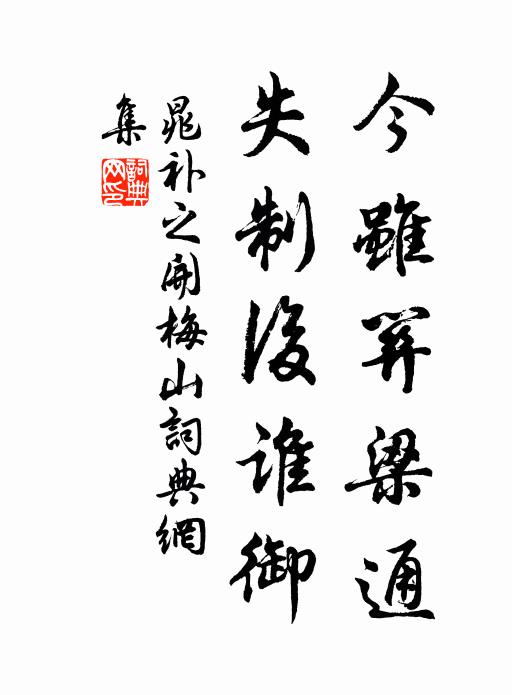 今雖關梁通
失制後誰御
晁补之開梅山詞典網
集
詞典
网印